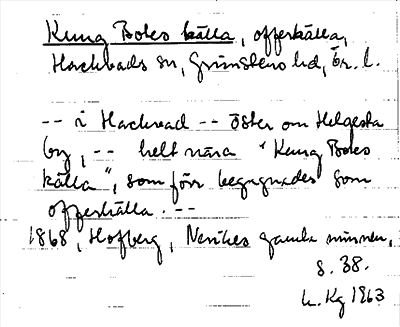 Kung Boles källa, offerkälla,
Hackvads sn, Grimstens hd, Ör. l.
-- i Hackvad -- öster om Helgesta
by, -- helt nära "Kung Boles
källa", som förr begagnades som
offerkälla. --
1868, Hofberg, Nerikes gamla minnen,
s. 38.
Kg 1963